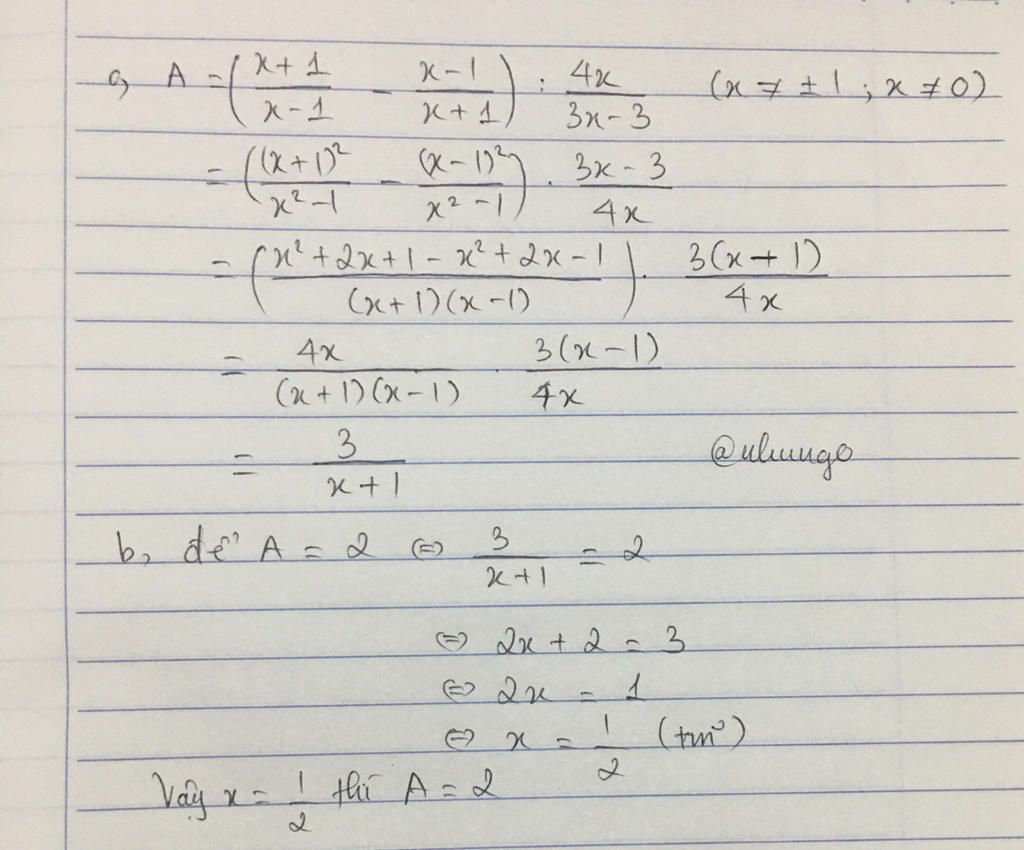 a, A = ((x+1)/(x-1) - (x-1)/(x+1)) : 4x/(3x-3) (x ≠ ±1 ; x ≠ 0)
= ((x+1)²/(x²-1) - (x-1)²/(x²-1)) . (3x-3)/4x
= ((x²+2x+1-x²+2x-1)/((x+1)(x-1))) . 3(x+1)/4x
= 4x/((x+1)(x-1)) . 3(x-1)/4x
= 3/(x+1)
@nhungo
b, để A = 2 ⇔ 3/(x+1) = 2
⇔ 2x + 2 = 3
⇔ 2x = 1
⇔ x = 1/2 (tm)
Vậy x = 1/2 thì A = 2